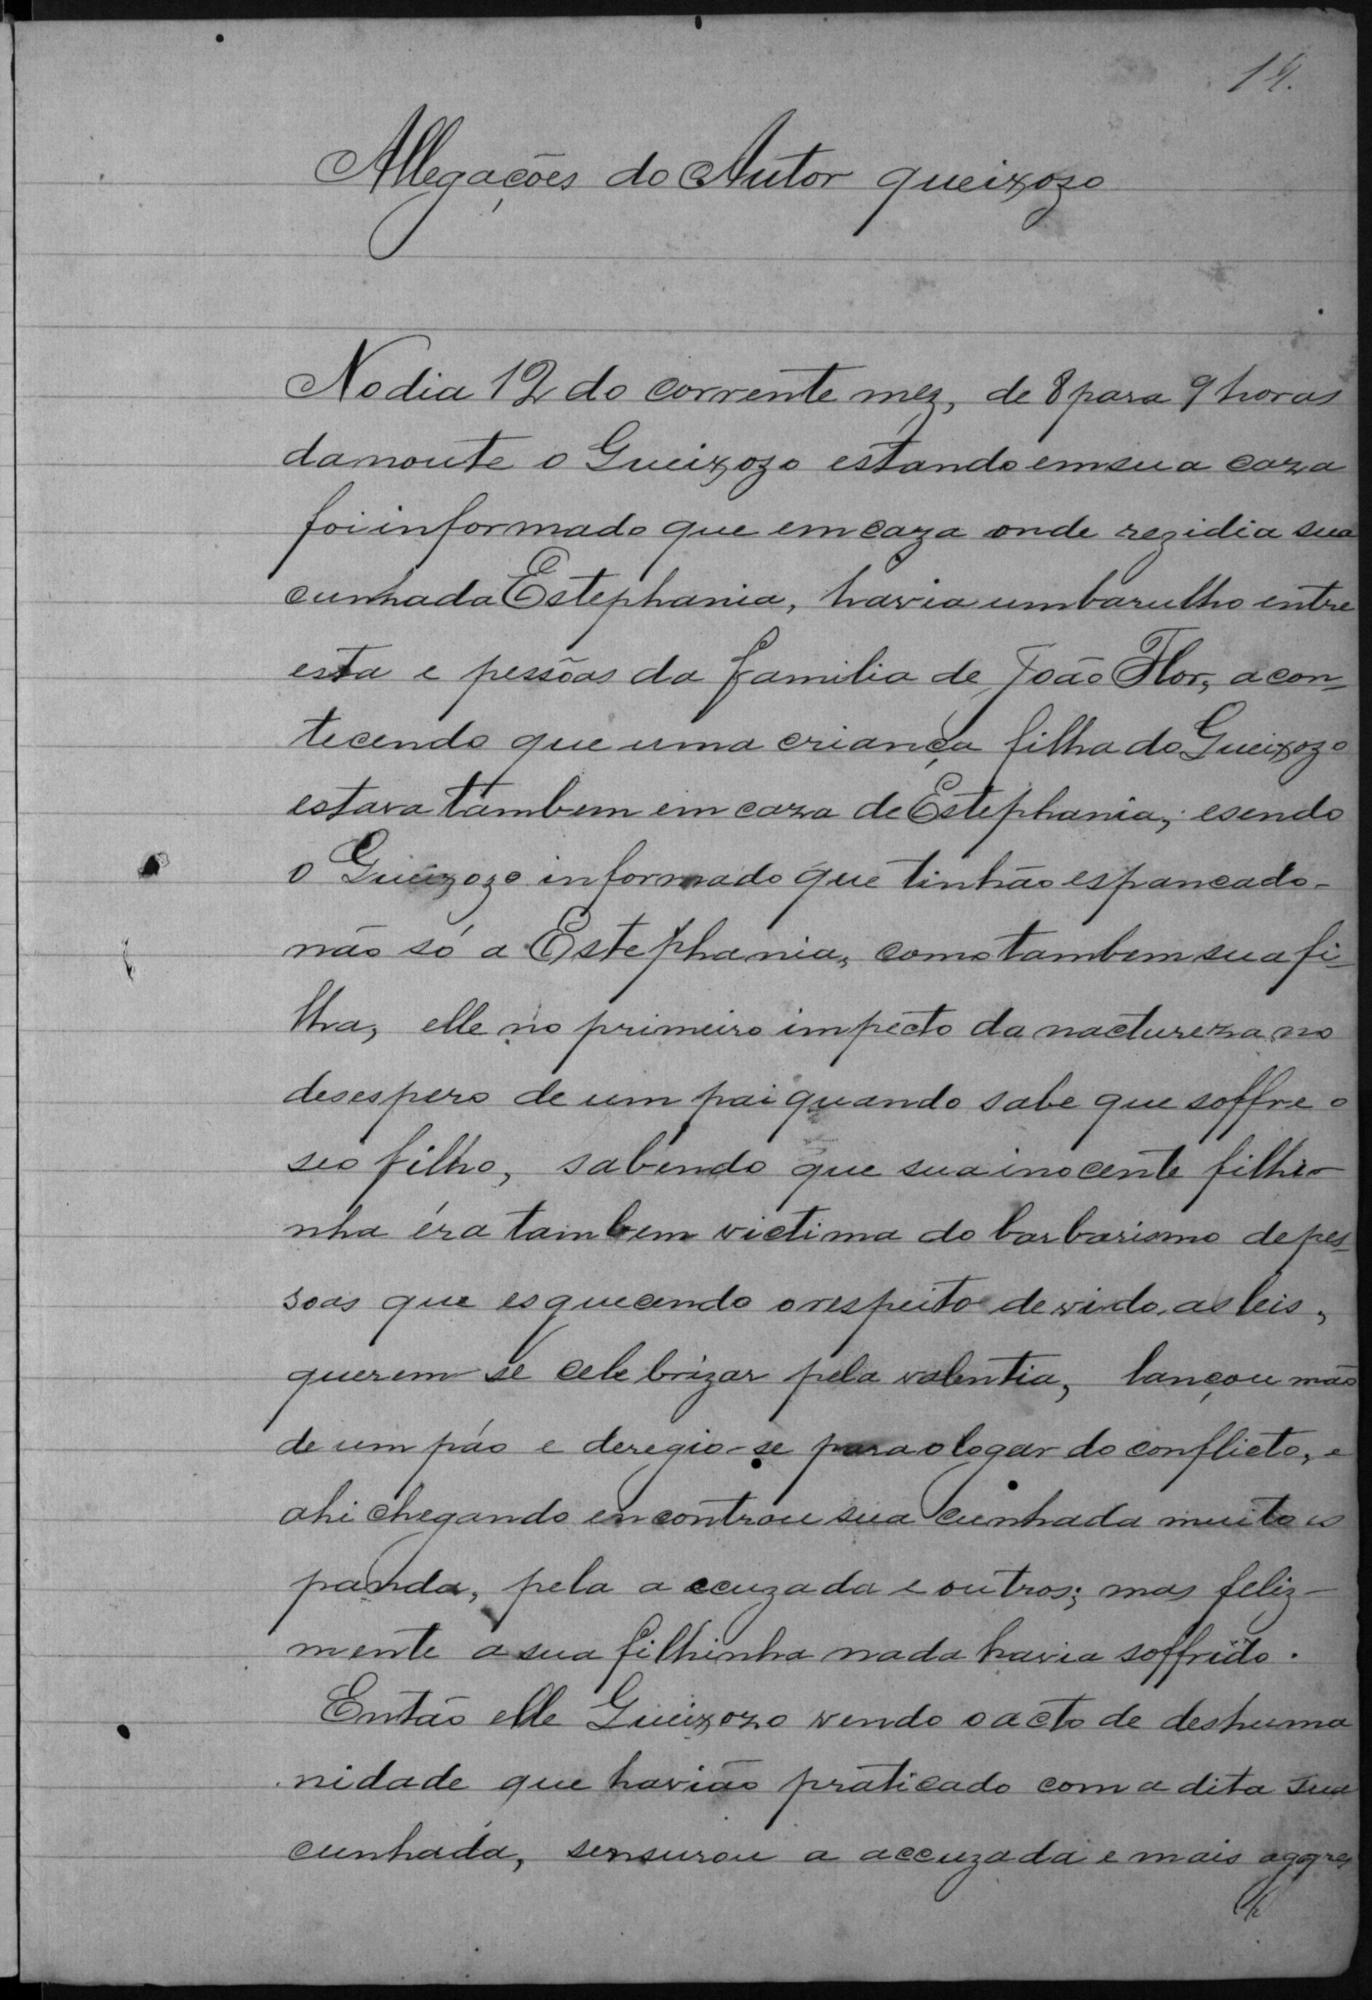 14.
Allegações do Autor queixozo
No dia 12 do corrente mêz, de 8 para 9 horas
da noute o Queixozo estando em sua caza
foi informado que em caza onde rezidia sua
cunhada Estephania, havia um barulho entre
esta e pessôas da familia de João Flor, acon-
tecendo que uma criança filha do Queixozo
estava tambem em caza de Estephania, e sendo
o Queixozo informado que tinhão espancado-
não só a Estephania, como tambem sua fi-
lha, elle no primeiro impecto da nactureza, no
desespero de um pai quando sabe que soffre o
seo filho, sabendo que sua inocente filhi-
nha éra tambem victima do barbarismo de pes-
soas que esquecendo o respeito devido as leis,
querem se celebrizar pela valentia, lançou mão
de um páo e deregio-se para o logar do conflicto, e
ahi chegando encontrou sua cunhada muito es
panda, pela accuzada e outros; mas feliz-
mente a sua filhinha nada havia soffrido.
Então elle Queixozo vendo o acto de deshuma
nidade que havião praticado com a dita sua
cunhada, sensurou a accuzada e mais aggres